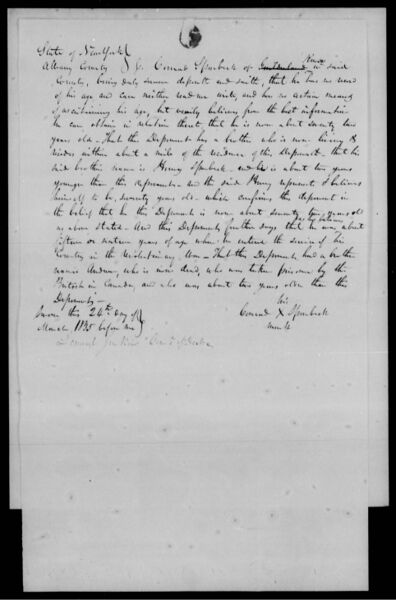 State of New York
Albany County } ss. Conrad Spoorbeck of said
County, being duly sworn deposeth and saith, that he has no record
of his age and can neither read nor write, and has no certain means
of ascertaining his age, but verily believes from the best information
he can obtain in relation thereto that he is now about seventy two
years old - That this Deponent has a brother who is now living &
resides within about a mile of the residence of this Deponent - that his
said brother name is Henry Spoorbeck - and is about two years
younger than this deponent - and the said Henry represents & believes
himself to be seventy years old - which confirms this deponent in
the belief that he this Deponent is now about seventy two years old
as above stated - And this Deponent further says that he was about
fifteen or sixteen years of age when he entered the service of his
Country in the Revolutionary War - That this Deponent had a brother
named Andrew, who is now dead, who was taken prisoner by the
British in Canada, and who was about two years older than this
Deponent -
Sworn this 24th day of
March 1835 before me }
his
Conrad X Spoorbeck
mark